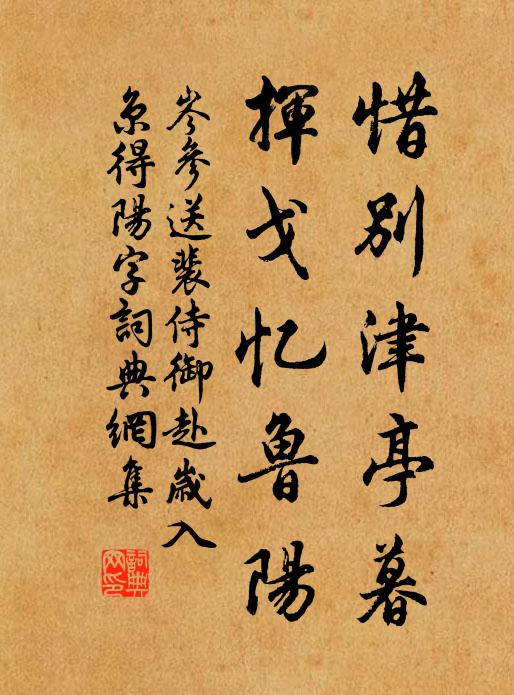 惜别津亭暮
揮戈忆魯陽
岑參送裴侍御赴歲入
京得陽字詞典網集
詞典
网印